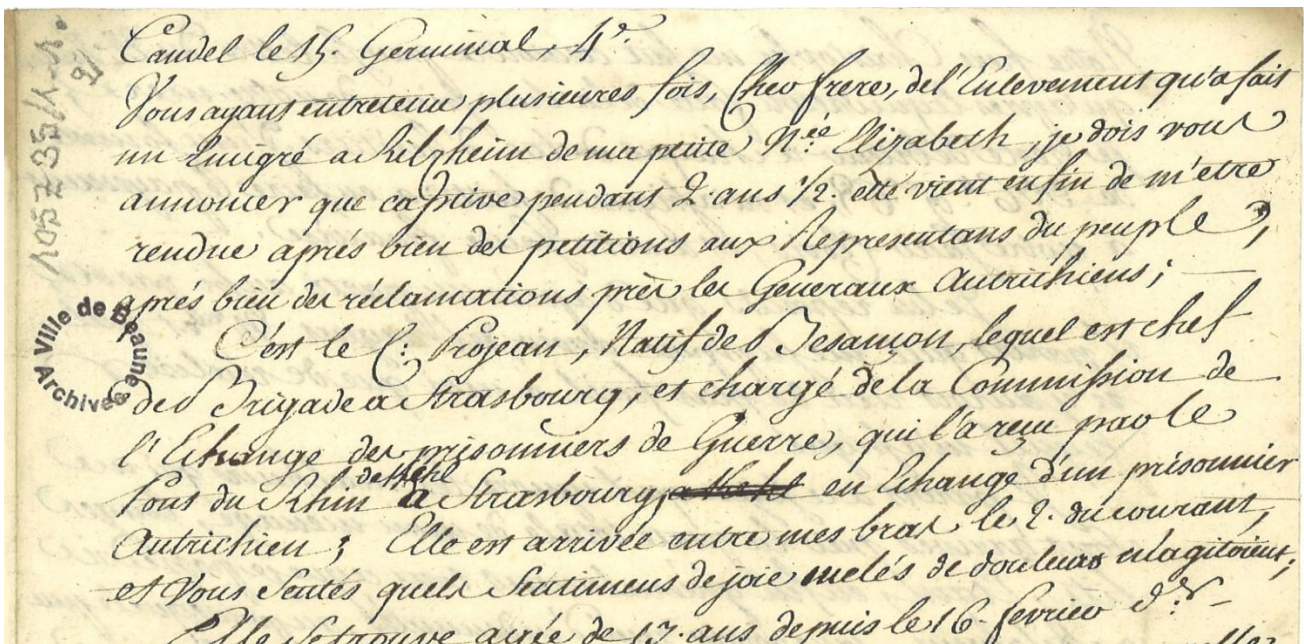 Candel le 15. Germinal, 4e.
Vous ayant entretenu plusieures fois, Cher frere, de l'Enlevement qu'a fait
un Emigré a Rilzheim de ma petite Niéé Elizabeth, je dois vous
annoncer que captive pendant 2. ans 1/2. elle vient enfin de m'etre
rendue aprés bien des petitions aux Representans du peuple,
aprés bien des réclamations près les Generaux Autrichiens;
C'est le C: Projean, Natif de Besançon, lequel est chef
de Brigade a Strasbourg, et chargé de la Commission de
l'Echange des prisonniers de Guerre, qui l'a reçu par le
Pont du Rhin de Kehl a Strasbourg, a Kehl en Echange d'un prisonnier
Autrichien; Elle est arrivée entre mes bras le 2. du courant,
et Vous Sentés quels Sentimens de joie melés de douleur m'agitoient;
Elle Se trouve agée de 17. ans depuis le 16. fevrier d.r
105Z35/1-1.
2
Ville de Beaune
Archives